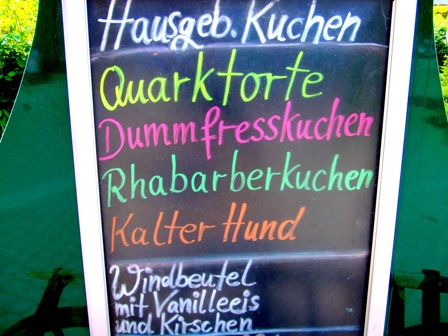 Hausgeb. Kuchen
Quarktorte
Dummfresskuchen
Rhabarberkuchen
Kalter Hund
Windbeutel
mit Vanilleeis
und Kirschen